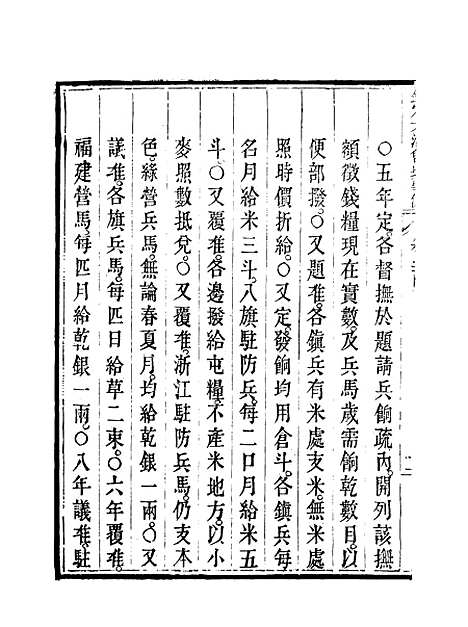 ○五年定各督撫於題請兵餉疏內開列該撫
額徵錢糧現在實數及兵馬歲需餉乾數目以
便部撥○又題准各鎭兵有米處支米無米處
照時價折給○又定發餉均用倉斗各鎭兵每
名月給米三斗八旗駐防兵每二口月給米五
斗○又覆准各邊撥給屯糧不產米地方以小
麥照數抵兌○又覆准浙江駐防兵馬仍支本
色綠營兵馬無論春夏月均給乾銀一兩○又
議准各旗兵馬每匹日給草二束○六年覆准
福建營馬每匹月給乾銀一兩○八年議准駐